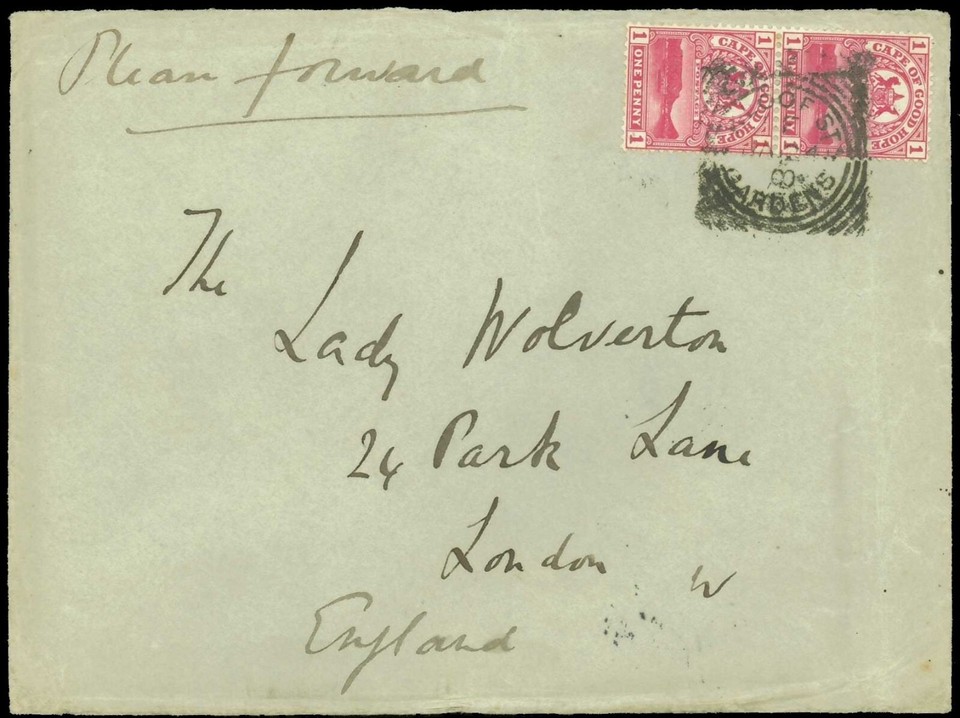 Please forward
1 CAPE OF GOOD HOPE 1
1 ONE PENNY 1
1 CAPE OF GOOD HOPE 1
1 ONE PENNY 1
GARDENS
The
Lady Wolverton
24 Park Lane
London W
England